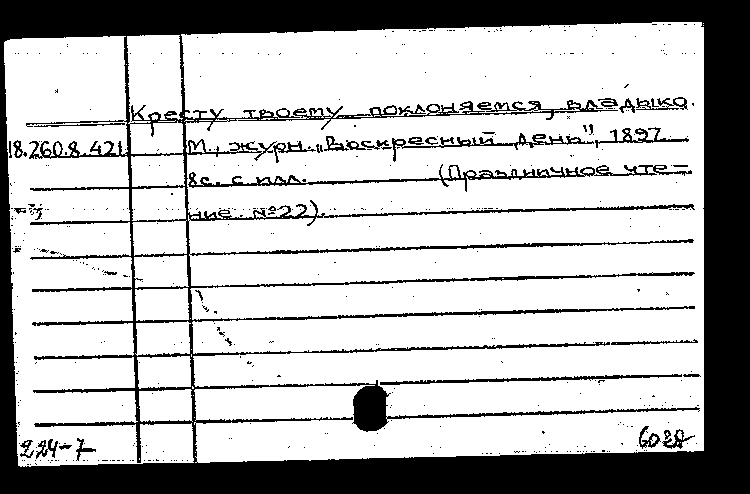 Кресту твоему поклоняемся, владыко.
18.260.8.421 М., журн. „Воскресный день", 1897.
8с. с илл. (Праздничное чте-
ние №22).
224-7 6028